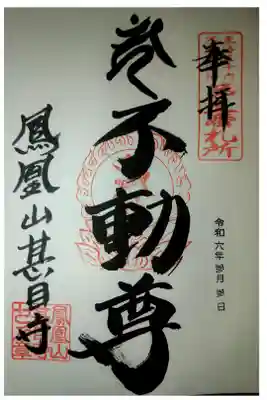 奉拝
不動尊
令和六年参月参日
鳳凰山甚目寺